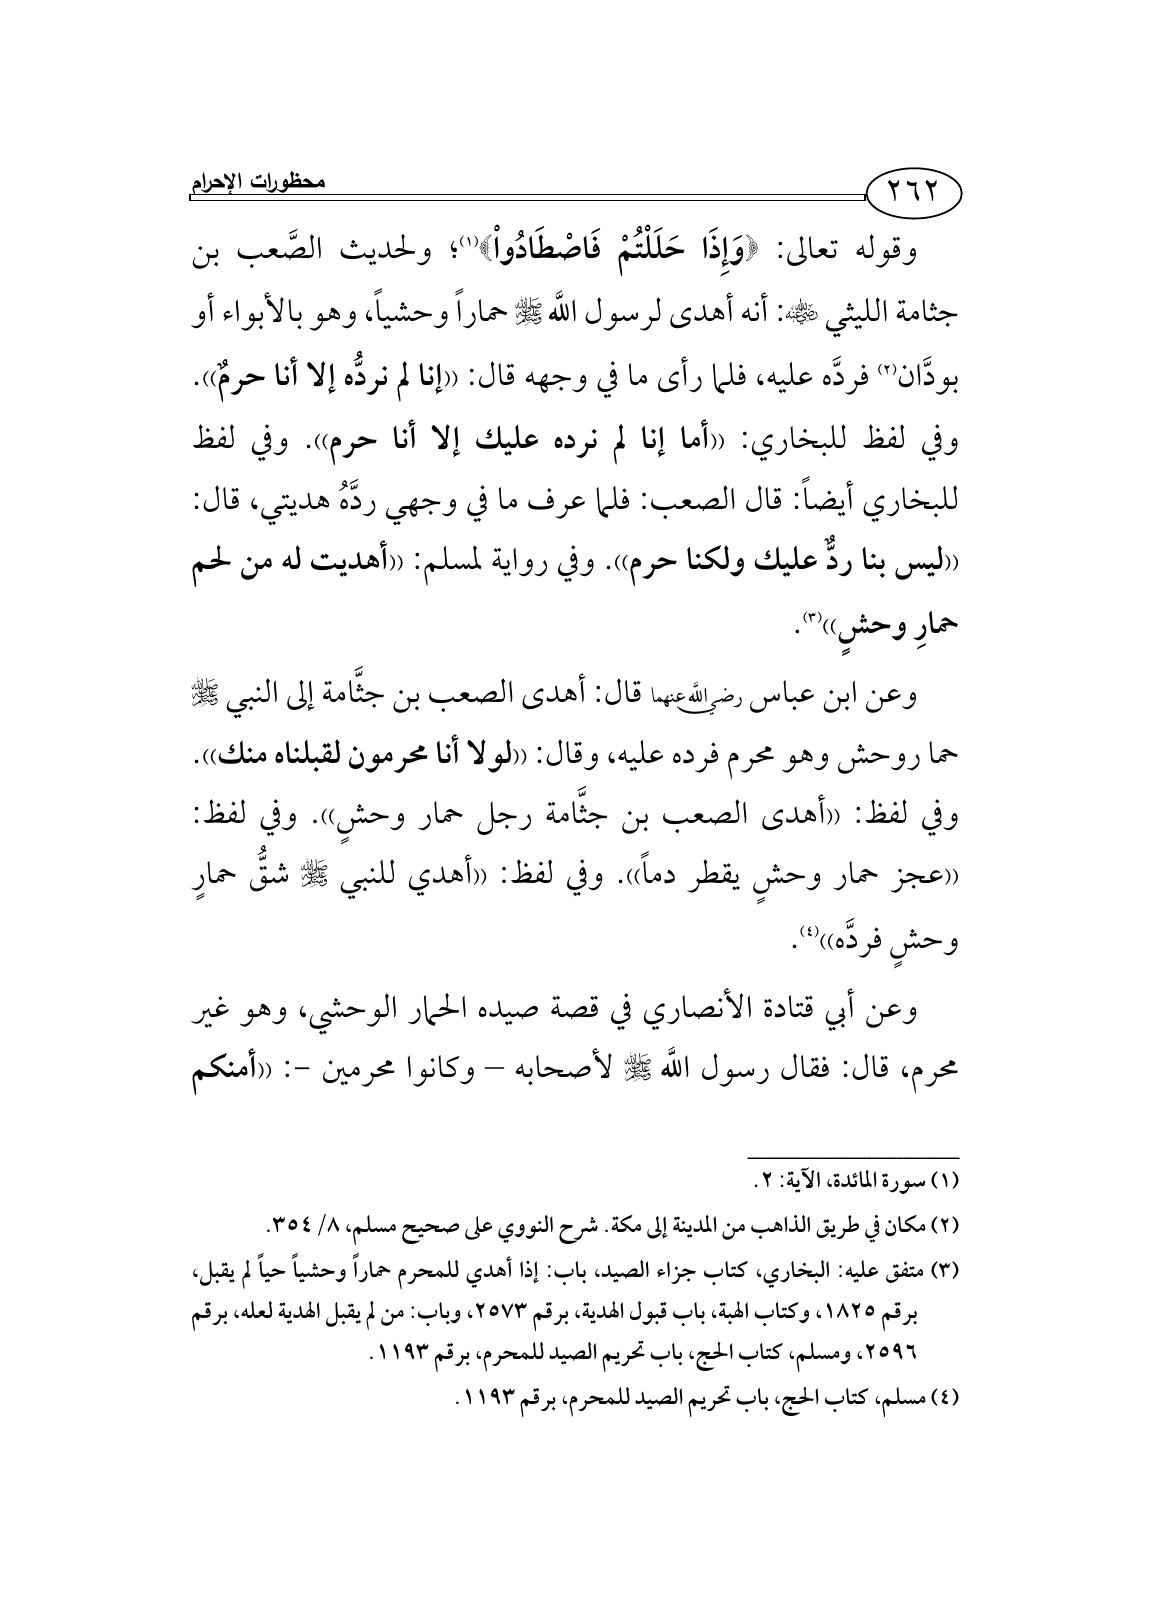 ٢٦٢
محظورات الإحرام
وقوله تعالى: ﴿وَإِذَا حَلَلْتُمْ فَاصْطَادُواْ﴾(١)؛ ولحديث الصَّعب بن
جثامة الليثي ﵁: أنه أهدى لرسول اللَّه ﷺ حماراً وحشياً، وهو بالأبواء أو
بودَّان(٢) فردَّه عليه، فلما رأى ما في وجهه قال: ((إنا لم نردُّه إلا أنا حرمٌ)).
وفي لفظ للبخاري: ((أما إنا لم نرده عليك إلا أنا حرم)). وفي لفظ
للبخاري أيضاً: قال الصعب: فلما عرف ما في وجهي ردَّهُ هديتي، قال:
((ليس بنا ردٌّ عليك ولكنا حرم)). وفي رواية لمسلم: ((أهديت له من لحم
حمارِ وحشٍ))(٣).
وعن ابن عباس رضي الله عنهما قال: أهدى الصعب بن جثَّامة إلى النبي ﷺ
حما روحش وهو محرم فرده عليه، وقال: ((لولا أنا محرمون لقبلناه منك)).
وفي لفظ: ((أهدى الصعب بن جثَّامة رجل حمار وحشٍ)). وفي لفظ:
((عجز حمار وحشٍ يقطر دماً)). وفي لفظ: ((أهدي للنبي ﷺ شقُّ حمارٍ
وحشٍ فردَّه))(٤).
وعن أبي قتادة الأنصاري في قصة صيده الحمار الوحشي، وهو غير
محرم، قال: فقال رسول اللَّه ﷺ لأصحابه – وكانوا محرمين -: ((أمنكم
(١) سورة المائدة، الآية: ٢.
(٢) مكان في طريق الذاهب من المدينة إلى مكة. شرح النووي على صحيح مسلم، ٨/ ٣٥٤.
(٣) متفق عليه: البخاري، كتاب جزاء الصيد، باب: إذا أهدي للمحرم حماراً وحشياً حياً لم يقبل،
برقم ١٨٢٥، وكتاب الهبة، باب قبول الهدية، برقم ٢٥٧٣، وباب: من لم يقبل الهدية لعله، برقم
٢٥٩٦، ومسلم، كتاب الحج، باب تحريم الصيد للمحرم، برقم ١١٩٣.
(٤) مسلم، كتاب الحج، باب تحريم الصيد للمحرم، برقم ١١٩٣.